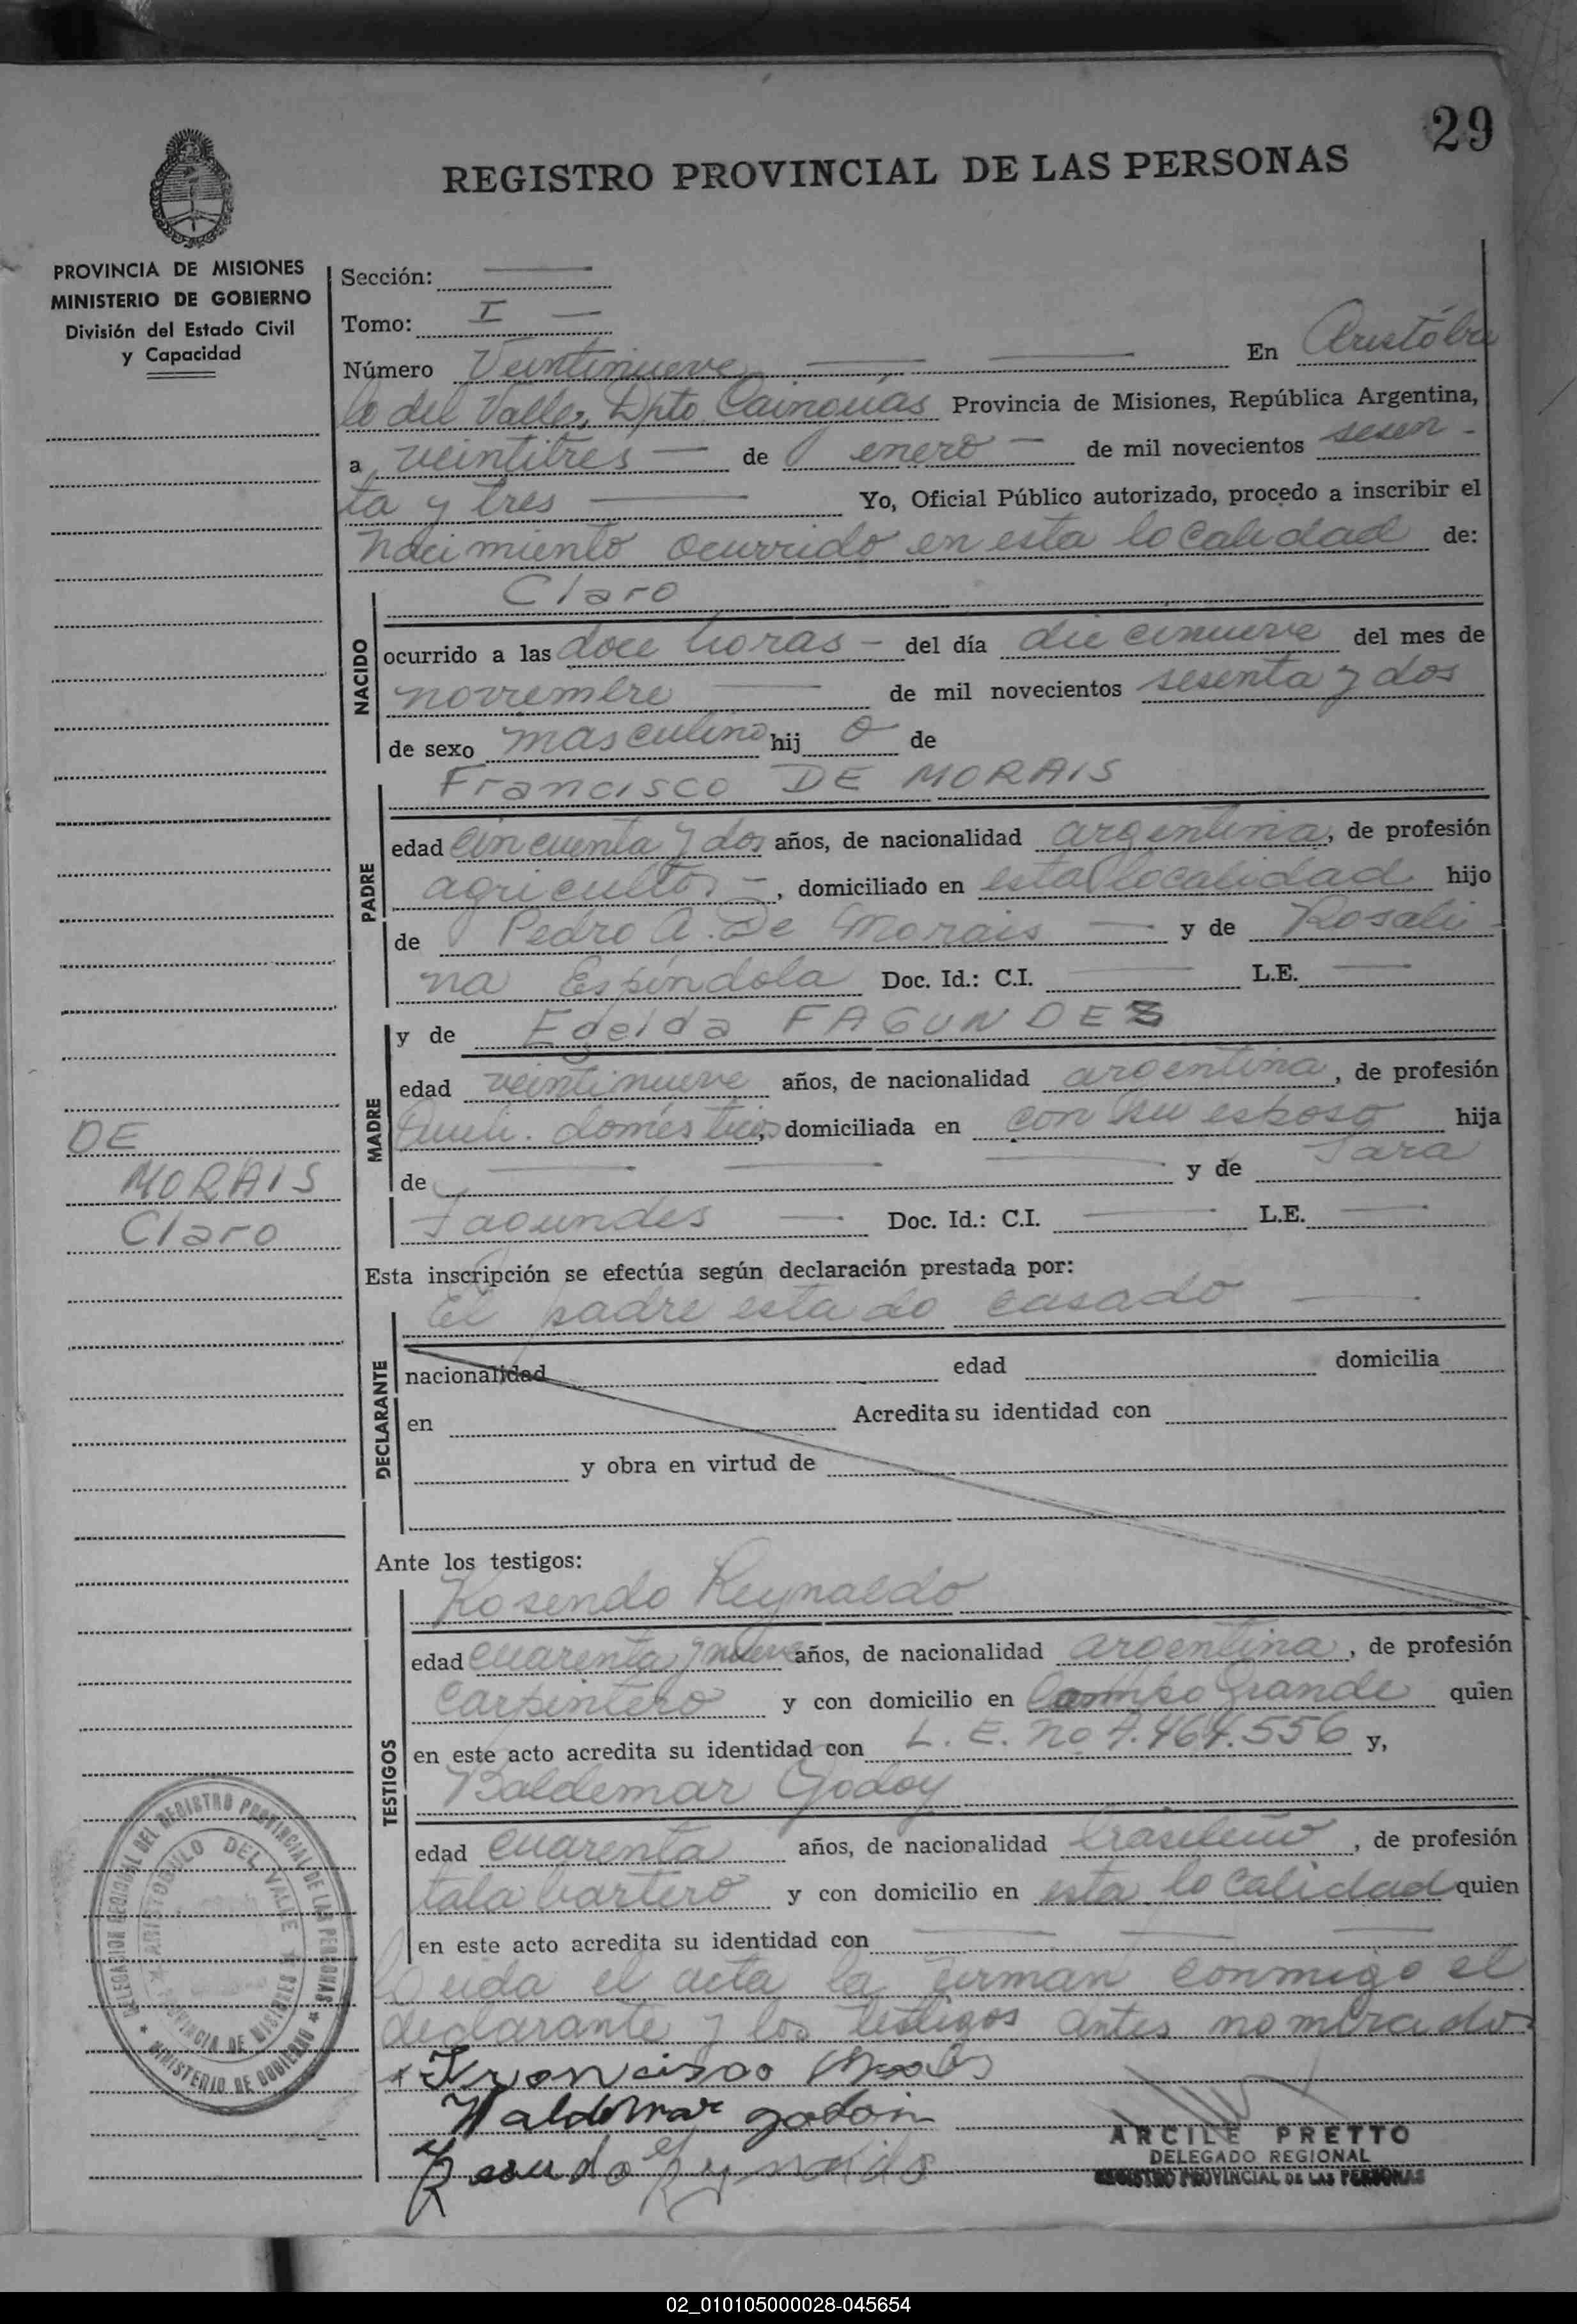 29
REGISTRO PROVINCIAL DE LAS PERSONAS
PROVINCIA DE MISIONES
MINISTERIO DE GOBIERNO
División del Estado Civil
y Capacidad
Sección:
Tomo: I
Número Veintinueve En Aristóbu
lo del Valle, Dpto Cainguás Provincia de Misiones, República Argentina,
a veintitres de enero de mil novecientos sesen-
ta y tres Yo, Oficial Público autorizado, procedo a inscribir el
nacimiento ocurrido en esta localidad de:
NACIDO
Claro
ocurrido a las doce horas del día diecinueve del mes de
noviembre de mil novecientos sesenta y dos
de sexo masculino hij o de
PADRE
Francisco DE MORAIS
edad cincuenta y dos años, de nacionalidad argentina, de profesión
agricultor, domiciliado en esta localidad hijo
de Pedro A. De Morais y de Rosali
na Espíndola Doc. Id.: C.I. L.E.
MADRE
y de Egelda FAGUNDES
edad veintinueve años, de nacionalidad argentina, de profesión
domésticos, domiciliada en con su esposo hija
de y de Sara
Fagundes Doc. Id.: C.I. L.E.
DE
MORAIS
Claro
Esta inscripción se efectúa según declaración prestada por:
DECLARANTE
El padre estado casado
nacionalidad edad domicilia
en Acredita su identidad con
y obra en virtud de
Ante los testigos:
TESTIGOS
Rosendo Reynaldo
edad cuarenta y nueve años, de nacionalidad argentina, de profesión
carpintero y con domicilio en Campo Grande quien
en este acto acredita su identidad con L. E. no 7.464.556 y,
Baldemar Godoy
edad cuarenta años, de nacionalidad brasileño, de profesión
talabartero y con domicilio en esta localidad quien
en este acto acredita su identidad con
Leida el acta la firman conmigo el
declarante y los testigos antes nombrados
Francisco
Waldemar godoi
Rosendo Reynaldo
DELEGACION REGIONAL DEL REGISTRO PROVINCIAL DE LAS PERSONAS
ARISTOBULO DEL VALLE
PROVINCIA DE MISIONES
MINISTERIO DE GOBIERNO
ARCILE PRETTO
DELEGADO REGIONAL
REGISTRO PROVINCIAL DE LAS PERSONAS
02_010105000028-045654